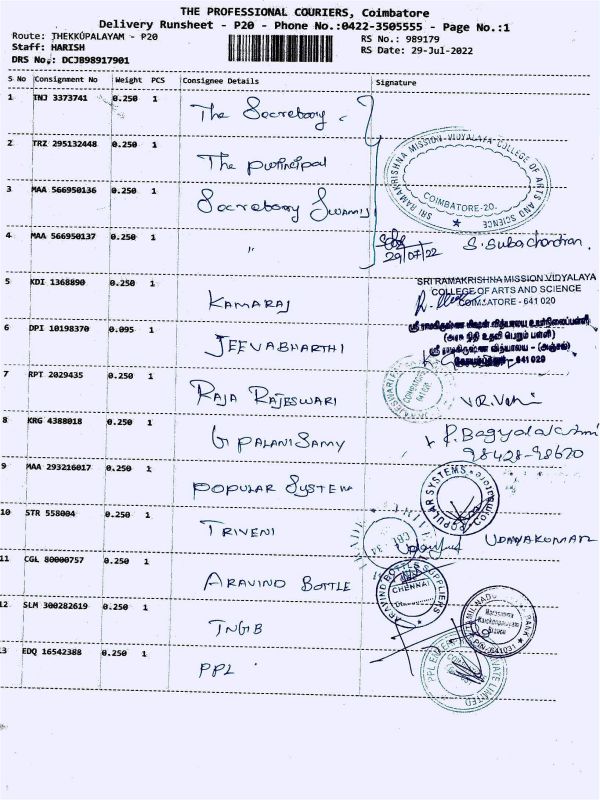 THE PROFESSIONAL COURIERS, Coimbatore
Delivery Runsheet - P20 - Phone No.:0422-3505555 - Page No.:1
Route: THEKKUPALAYAM - P20
RS No.: 989179
Staff: HARISH
RS Date: 29-Jul-2022
DRS No.: DCJB98917901
S No Consignment No Weight PCS Consignee Details Signature
1 TNJ 3373741 0.250 1 The Secretary
2 TRZ 295132448 0.250 1 The principal
SRI RAMAKRISHNA MISSION VIDYALAYA COLLEGE OF ARTS AND SCIENCE
COIMBATORE-20.
3 MAA 566950136 0.250 1 Secretary Swamiji
4 MAA 566950137 0.250 1 "
29/07/22 S. Subachandran.
SRI RAMAKRISHNA MISSION VIDYALAYA
COLLEGE OF ARTS AND SCIENCE
COIMBATORE - 641 020
5 KDI 1368890 0.250 1 KAMARAJ
6 DPI 10198370 0.095 1 JEEVABHARTHI
ஸ்ரீ ராமகிருஷ்ண மிஷன் வித்யாலயா உயர்நிலைப்பள்ளி
(அரசு நிதி உதவி பெறும் பள்ளி)
ஸ்ரீ ராமகிருஷ்ண வித்யாலயா - (அஞ்சல்)
கோயம்புத்தூர் - 641 020
7 RPT 2029435 0.250 1 RAJA RAJESWARI
8 KRG 4388018 0.250 1 G PALANISAMY
R. Bagyalakshmi
98428-98670
9 MAA 293216017 0.250 1 POPULAR SYSTEM
POPULAR SYSTEMS
Coimbatore
10 STR 558004 0.250 1 TRIVENI
UDAYAKUMAR
11 CGL 80000757 0.250 1 ARAVIND BOTTLE
ARAVIND BOTTLE SUPPLIERS
CHENNAI
12 SLM 300282619 0.250 1 TNGB
TAMIL NADU GRAMA BANK
Narasimma
Naickenpalayam
Branch
PIN-641031
13 EDQ 16542388 0.250 1 PPL
PRIVATE LIMITED